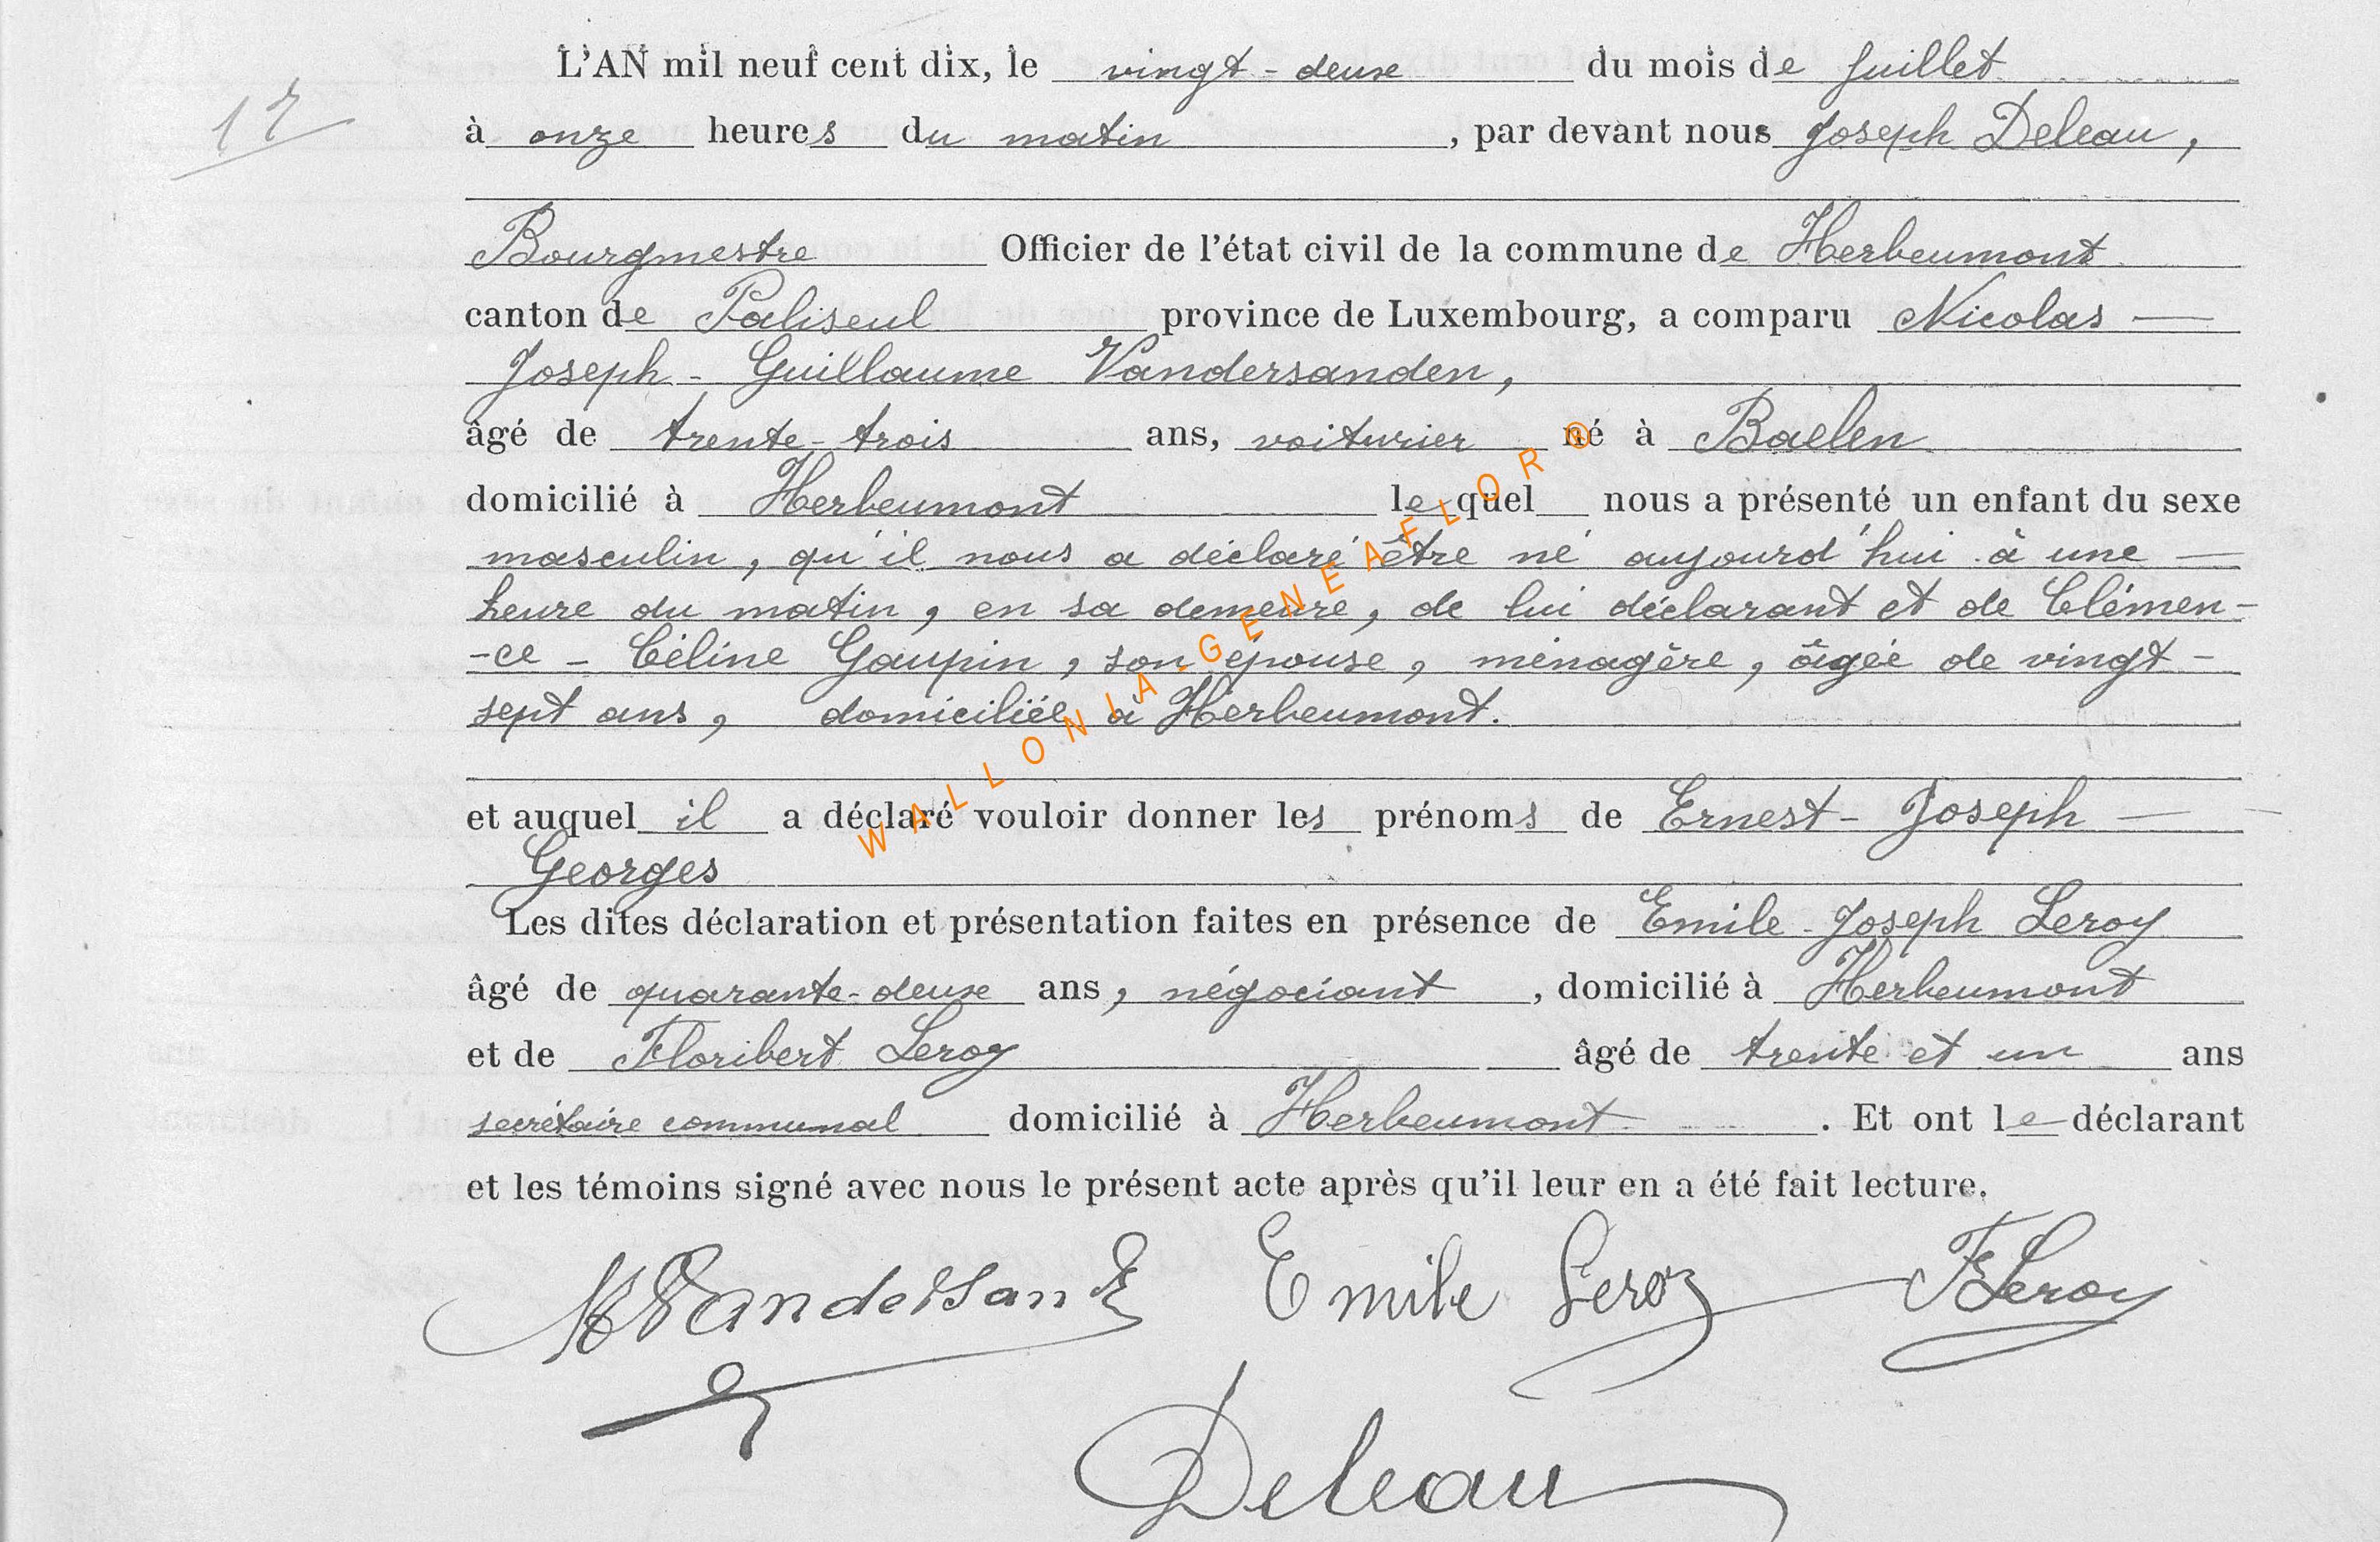 L'AN mil neuf cent dix, le vingt-deux du mois de Juillet
17
à onze heures du matin, par devant nous Joseph Deleau,
Bourgmestre Officier de l'état civil de la commune de Herbeumont
canton de Paliseul province de Luxembourg, a comparu Nicolas —
Joseph - Guillaume Vandersanden,
âgé de trente-trois ans, voiturier né à Baelen
domicilié à Herbeumont lequel nous a présenté un enfant du sexe
masculin, qu'il nous a déclaré être né aujourd'hui à une —
heure du matin, en sa demeure, de lui déclarant et de Clémen-
-ce - Céline Gaupin, son épouse, ménagère, âgée de vingt-
sept ans, domiciliée à Herbeumont.
et auquel il a déclaré vouloir donner les prénoms de Ernest - Joseph —
Georges
Les dites déclaration et présentation faites en présence de Emile - Joseph Leroy
âgé de quarante-deux ans, négociant, domicilié à Herbeumont
et de Floribert Leroy âgé de trente et un ans
secrétaire communal domicilié à Herbeumont. Et ont le déclarant
et les témoins signé avec nous le présent acte après qu'il leur en a été fait lecture.
Emile Leroy FLeroy
Deleau
WALLONIA-GENEAFLOR©